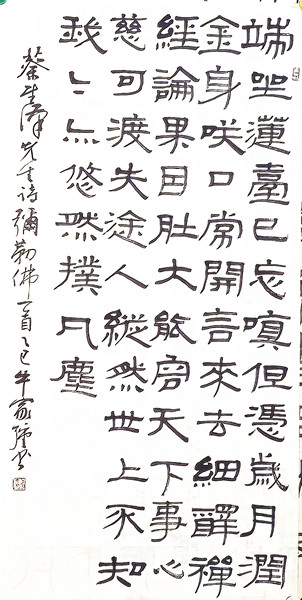 端坐蓮臺已忘嗔但憑歲月潤
金身咲口常開言來去細釋禪
經論果因肚大能容天下事心
慈可渡失途人縱然世上不知
我〻亦悠然撲凡塵
先生诗彌勒佛一首乙巳牛家书